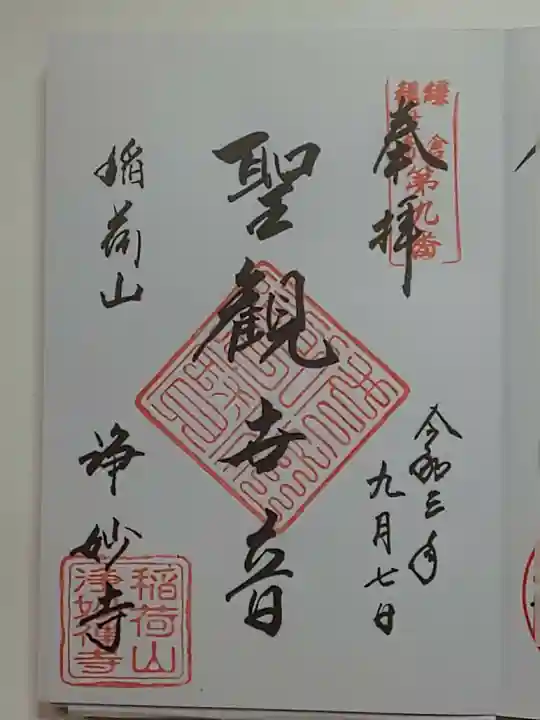 鎌倉
観音
第九番
奉拝
令和三年
九月七日
聖観世音
稲荷山
浄妙寺
稲荷山
浄妙禅寺